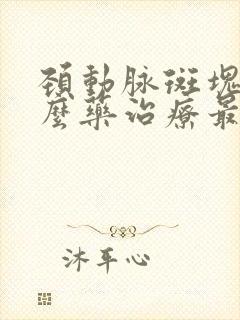 頸動脉斑塊
麼藥治療最
沐平心